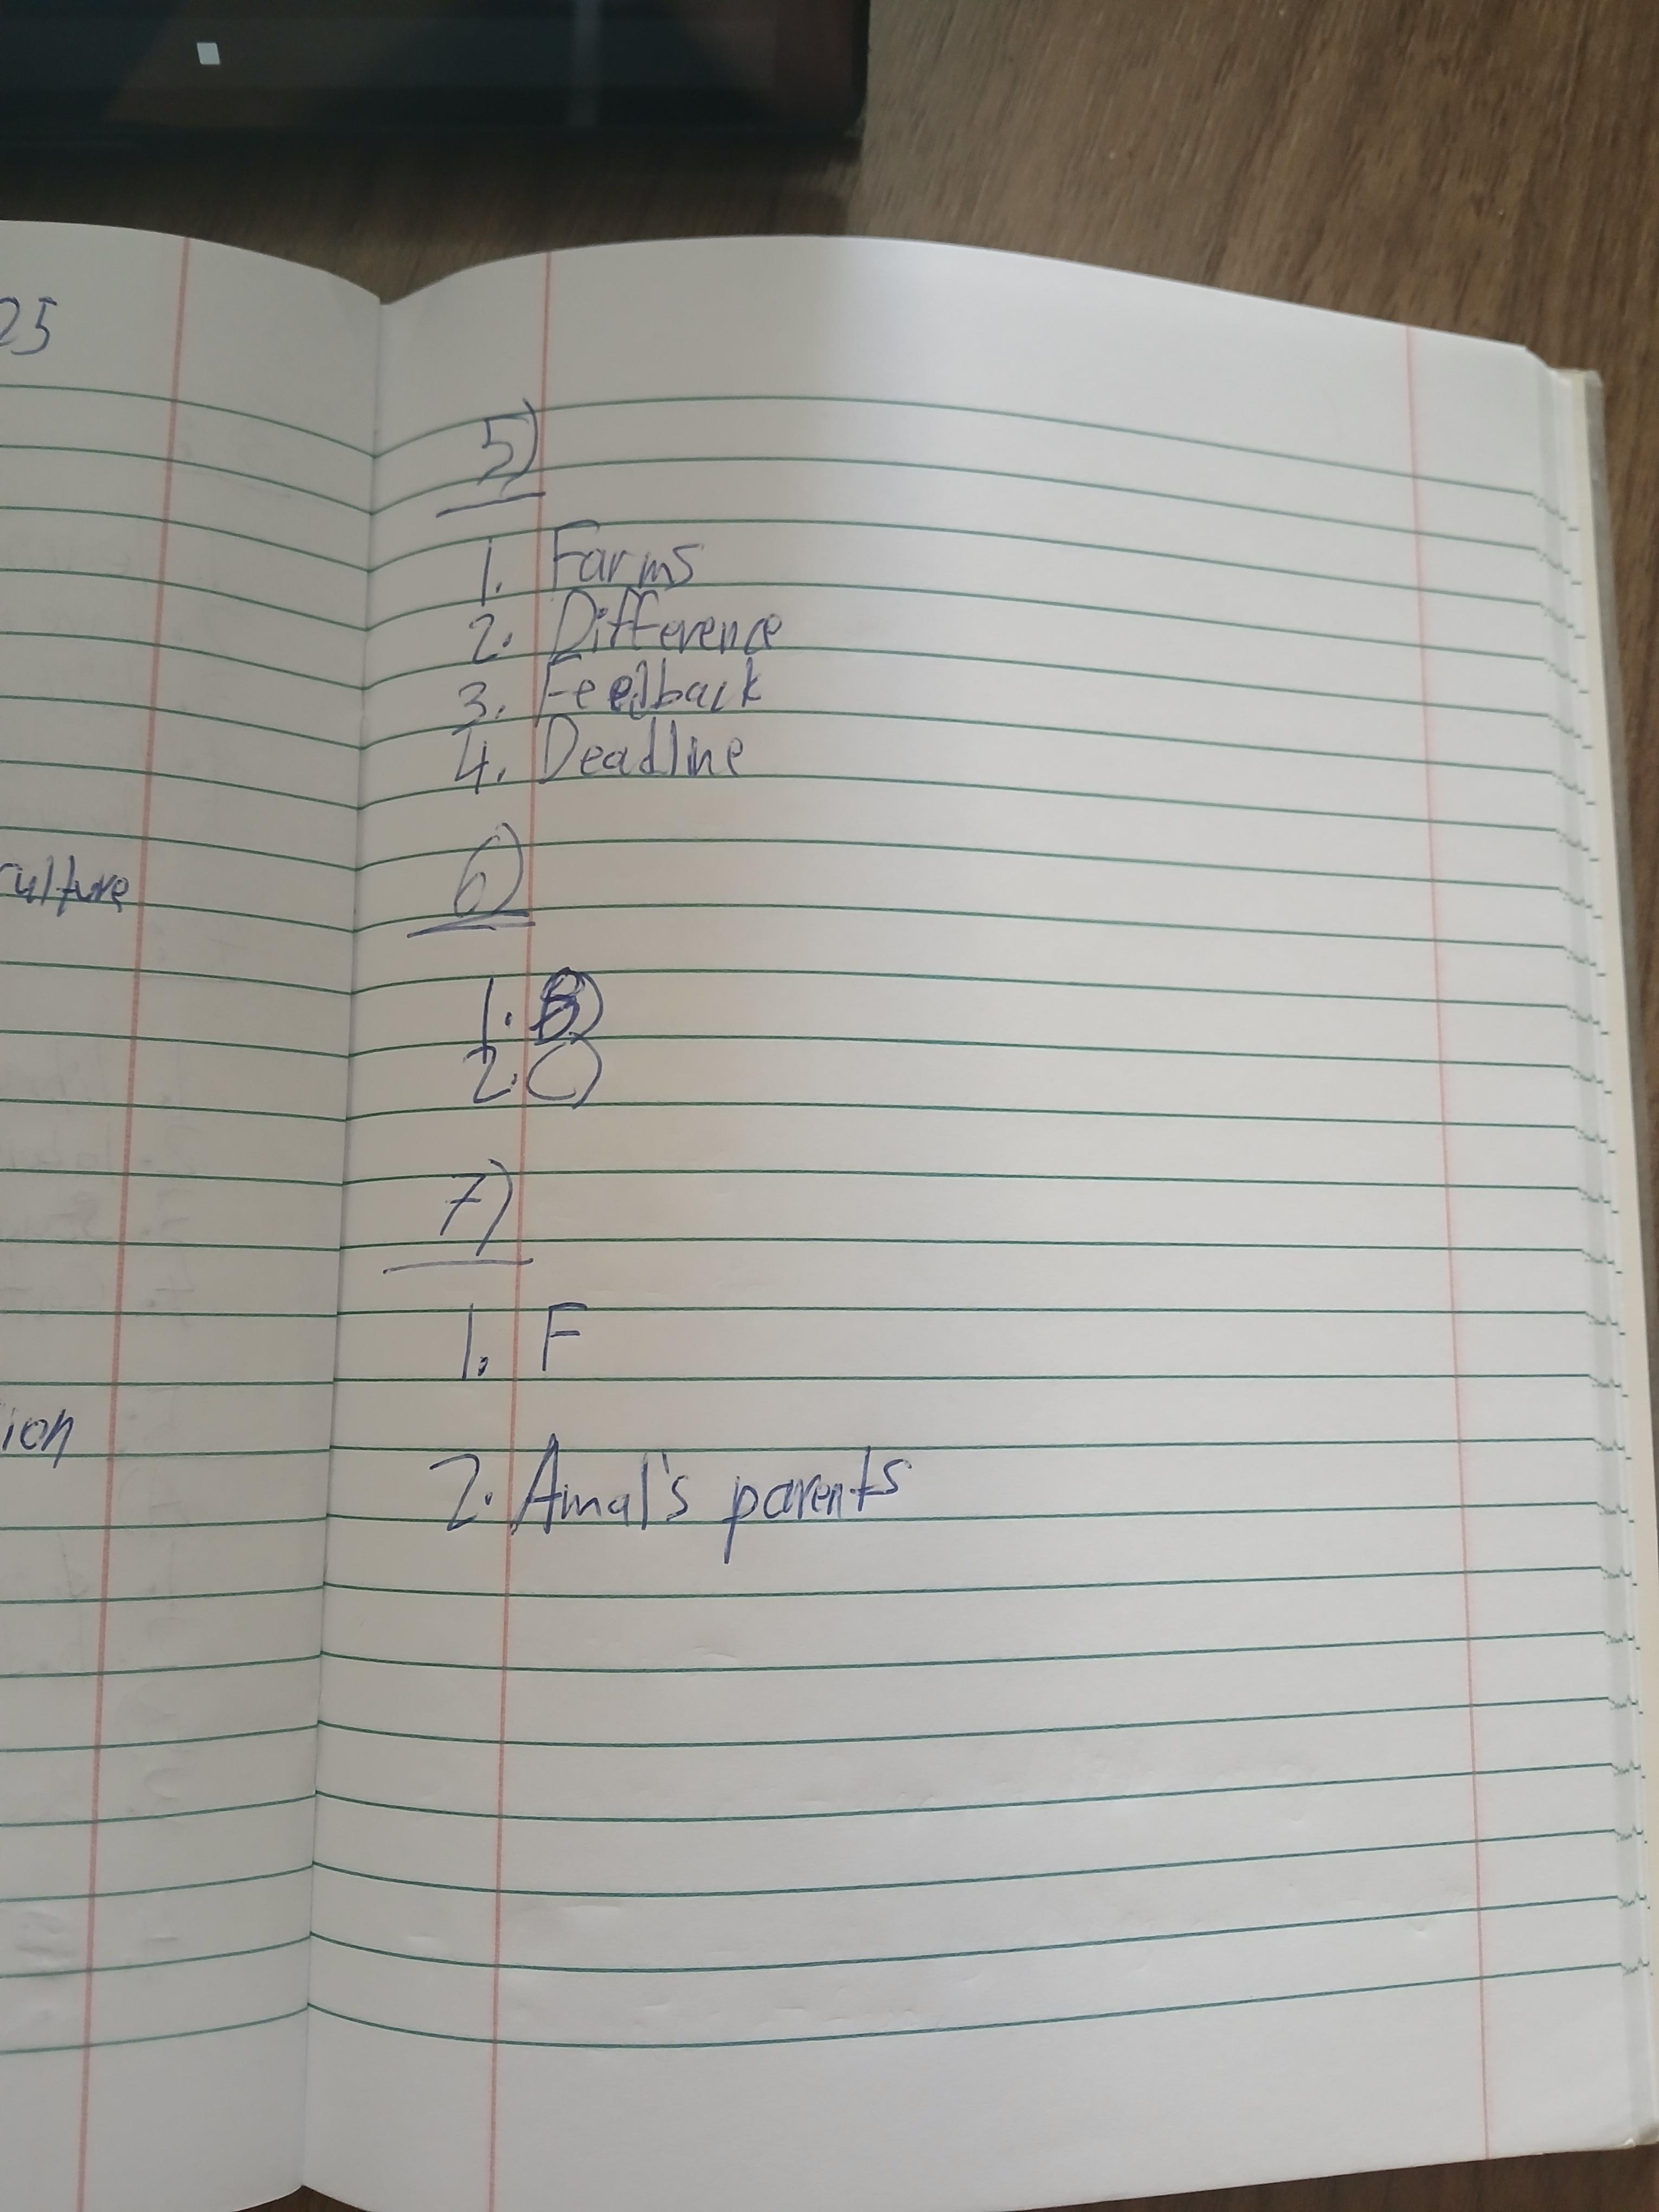 25
culture
ion
5)
1. Farms
2. Difference
3. Feedback
4. Deadline
6)
1. B)
2. C)
7)
1. F
2. Amal's parents